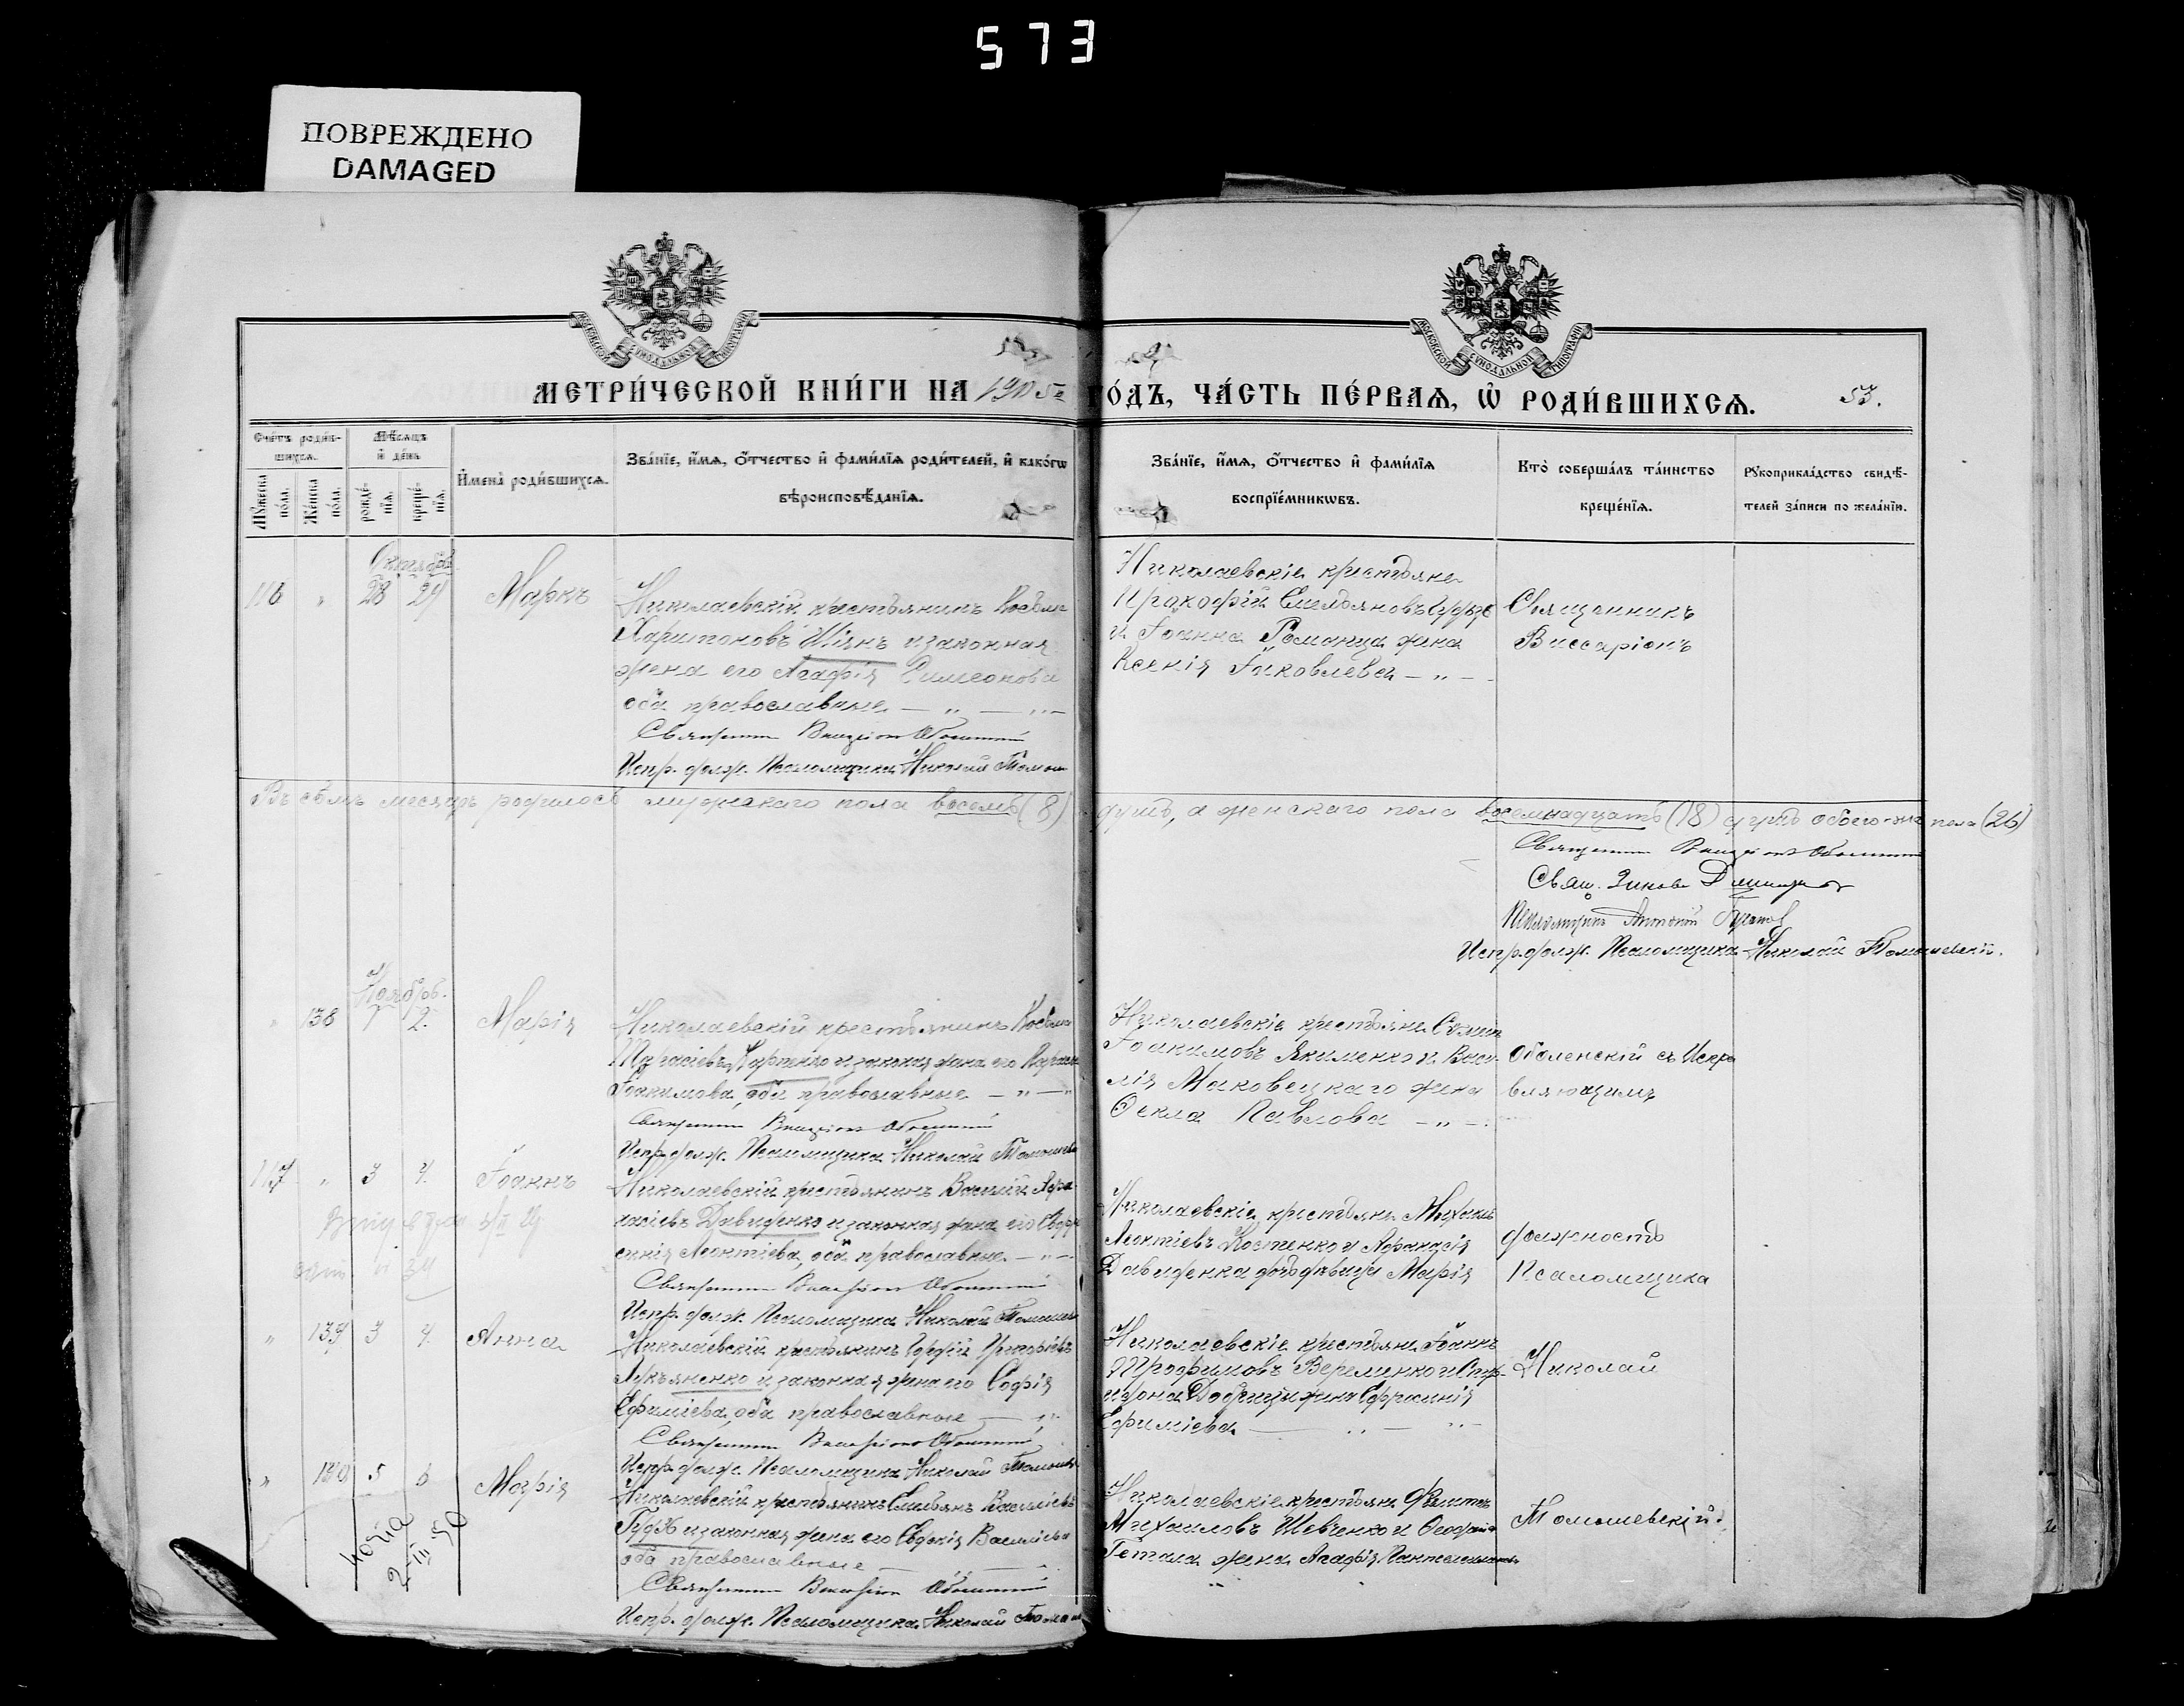 573
ПОВРЕЖДЕНО
DAMAGED
МОСКОВСКОЙ СѴНОДАЛЬНОЙ ТИПОГРАФІИ
МОСКОВСКОЙ СѴНОДАЛЬНОЙ ТИПОГРАФІИ
МЕТРИ́ЧЕСКОЙ КНИ́ГИ НА 1905й ГО́ДЪ, ЧА́СТЬ ПЕ́РВАѦ, Ѡ҆ РОДИ́ВШИХСѦ.
53.
Сче́тъ роди́вшихсѧ.
Мѣ́сѧцъ и҆ де́нь
Мꙋ́жеска по́ла.
Же́нска по́ла.
рожде́нїѧ.
креще́нїѧ.
И҆мена̀ роди́вшихсѧ.
Зва́нїе, и҆́мѧ, ѻ҆́тчество и҆ фами́лїѧ роди́телей, и҆ како́гѡ вѣроисповѣ́данїѧ.
Зва́нїе, и҆́мѧ, ѻ҆́тчество и҆ фами́лїѧ воспрїе́мникѡвъ.
Кто̀ соверша́лъ та́инство креще́нїѧ.
Рꙋкоприкла́дство свидѣ́телей за́писи по жела́нїю.
Октябрь
116 " 28 29 Маркъ
Николаевскій крестьянинъ Косьма
Харитоновъ Шіянъ и законная
жена его Агафія Симеонова
оба православные — " —
Священникъ Виссаріонъ Оболенскій
Испр. долж. Псаломщика Николай
Николаевскіе крестьяне
Прокофій Емельяновъ
и Іоанна Романца жена
Ксенія Іаковлева — " —
Священникъ
Виссаріонъ
Въ семъ месяцѣ родилось мужескаго пола восемь (8) душъ, а женскаго пола восемнадцать (18) душъ обоего пола (26)
Священникъ Виссаріонъ Оболенскій
Свящ.
Псаломщикъ
Испр. долж. Псаломщика Николай Томашевскій.
Ноябрь.
" 138 1 2. Марія
Николаевскій крестьянинъ Косьма
Тарасіевъ Карпенко и законная жена его
Іоакимова, оба православные — " —
Священникъ Виссаріонъ Оболенскій
Испр. долж. Псаломщика Николай
Николаевскіе крестьяне
Іоакимовъ Якименко и Васи-
лія Маковецкаго жена
Ѳекла Павлова — " —
Оболенскій съ Испра
вляющимъ
117 " 3 4. Іоаннъ
Николаевскій крестьянинъ Василій Аѳа-
насіевъ Давиденко и законная жена его Евфро
синія Леонтіева, оба православные — " —
Священникъ Виссаріонъ Оболенскій
Испр. долж. Псаломщика Николай
Николаевскіе крестьяне Михаилъ
Леонтіевъ Костенко и Аѳанасія
Давиденка дочь дѣвица Марія
должность
Псаломщика
" 139 3 4. Анна
Николаевскій крестьянинъ Гордій Григоріевъ
Лукьяненко и законная жена его Софія
Ефиміева, оба православные
Священникъ Виссаріонъ Оболенскій
Испр. долж. Псаломщика Николай
Николаевскіе крестьяне Іоаннъ
Трофимовъ Веременко и Спи-
ридона жена Ефросинія
Ефиміева
Николай
" 140 5 6 Марія
Николаевскій крестьянинъ Емельянъ Василіевъ
и законная жена его Евдокія Василіева
оба православные
Священникъ Виссаріонъ Оболенскій
Испр. долж. Псаломщика Николай
Николаевскіе крестьяне
Михаиловъ Шевченко и
Гетмана жена Агафія Пантелеимонова
Томашевскій.
копія
2-III-50